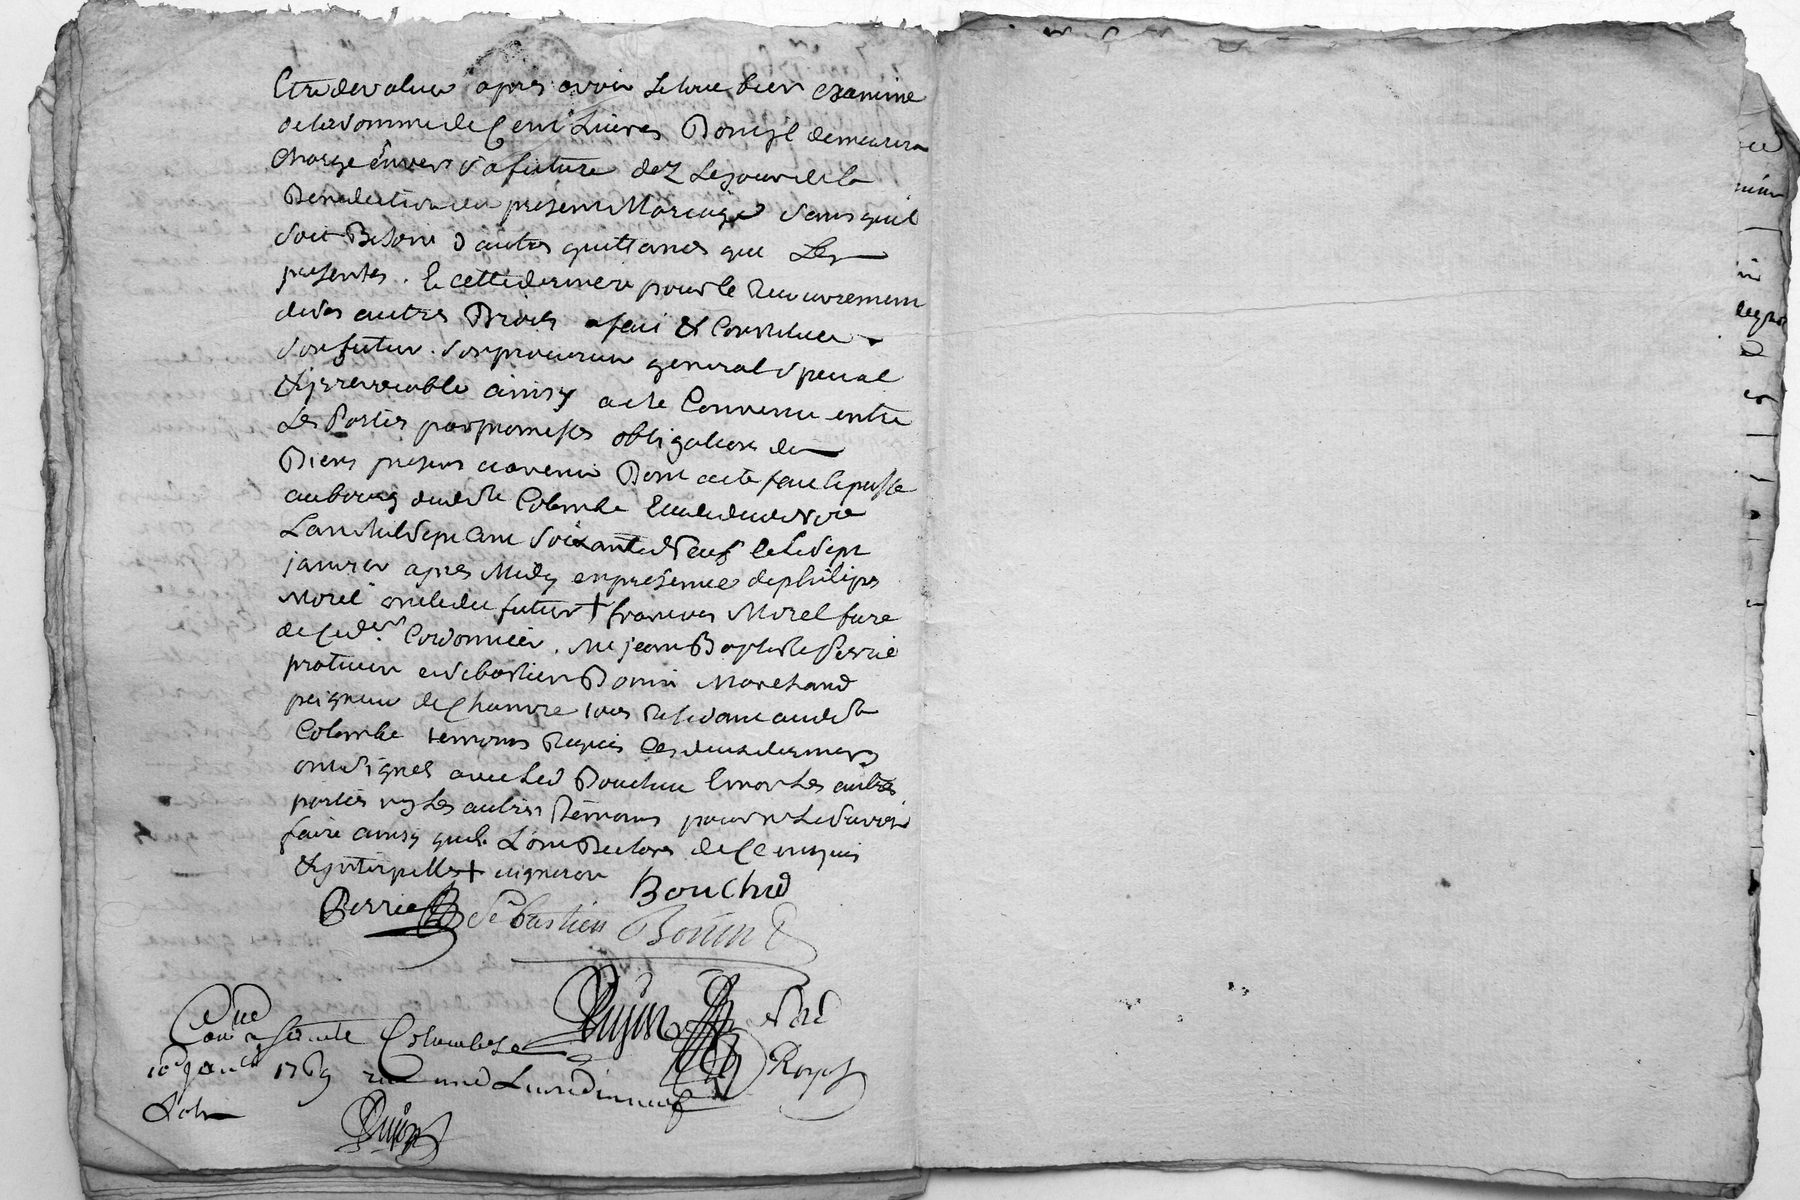 Etre de valuer apres avoir Letout bien examine
dela somme de Cent Livres Dont jl demeurera
Charge envers sa future dez Le jour dela
Benediction du present Mariage sans quil
soit Besoin d autres quittances que Les
presentes. Et cette derniere pour le Recouvrement
de ses autres Droits a fait & Constitue
son futur. son procureur general special
& jrrevocable ainsy a ete Convenu entre
Les Parties par promesses obligations de
Biens presens et avenir Dont acte fait et passe
au bourg dud Ste Colombe
Lan Mil Sept Cent soixante neuf et le sept
janvier apres Midy en presence de philipes
Morel oncle du futur + francois Morel frere
de Cedr. Cordonnier, Me jean Baptiste Perrié
praticien et sebastien Bonin Marchand
peigneur de Chanvre tous residant aud Ste
Colombe temoins Requis Les deux derniers
ont signes avec Led Bouchué Et non Les autres
parties ny Les autres Témoins pour ne Le savoir
faire ainsy quils L'ont Declaré de Ce enquis
& jnterpellés + vigneron
Bouchué
Perrié Sebastien Bonin
Dujon Nore
Con a Sainte Colombe Le Royal
10e janvier 1769 Une Livre dix neuf
Sols
Dujon